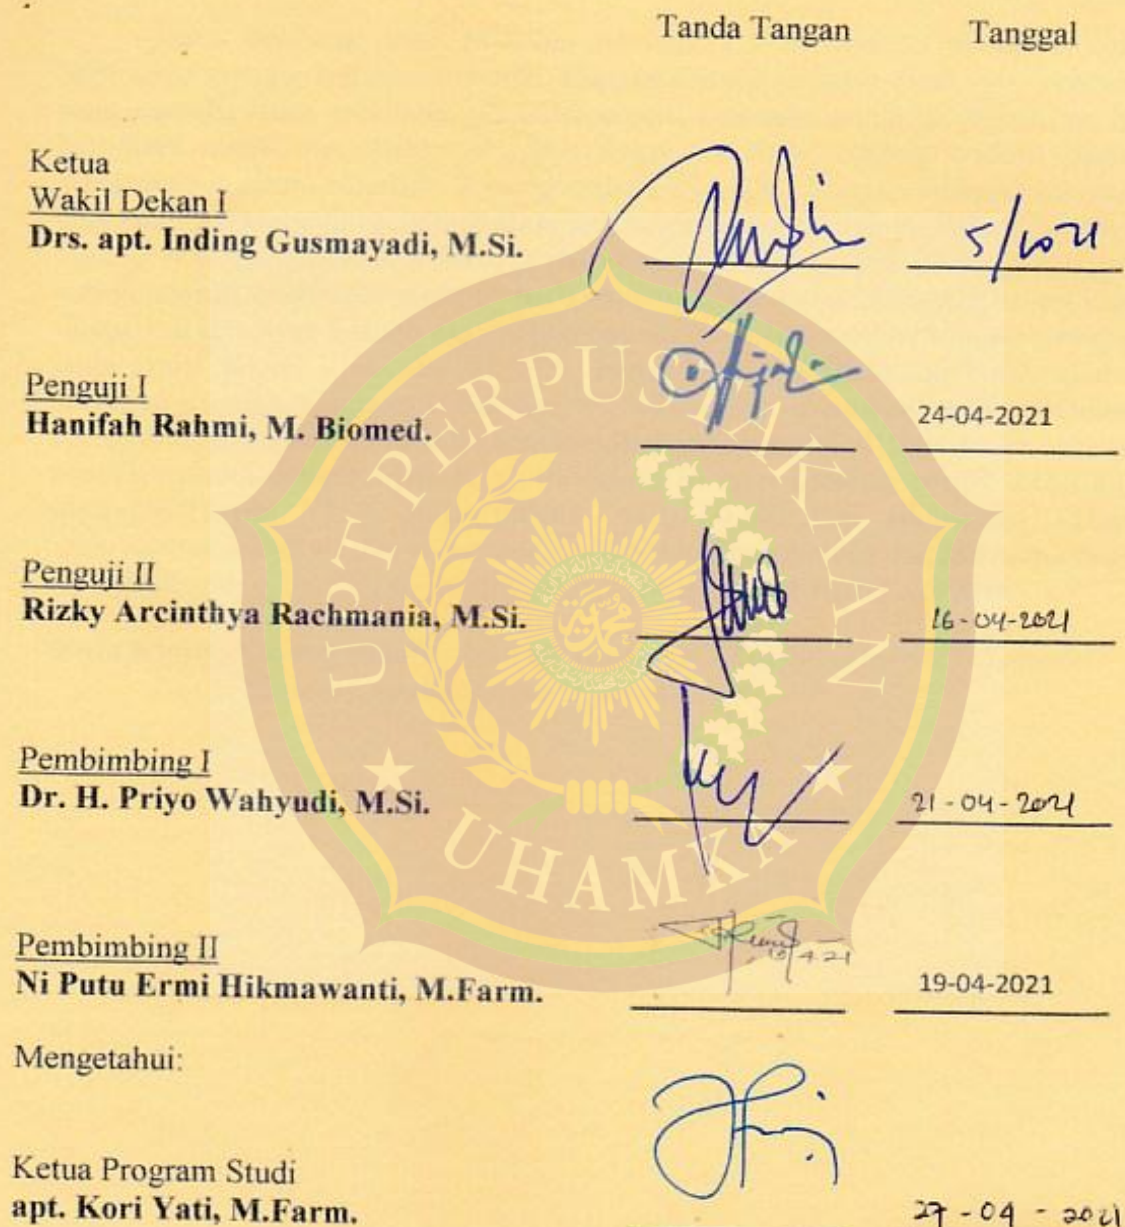 Tanda Tangan Tanggal
Ketua
Wakil Dekan I
Drs. apt. Inding Gusmayadi, M.Si.
5/2021
Penguji I
Hanifah Rahmi, M. Biomed.
24-04-2021
Penguji II
Rizky Arcinthya Rachmania, M.Si.
16-04-2021
Pembimbing I
Dr. H. Priyo Wahyudi, M.Si.
21-04-2021
Pembimbing II
Ni Putu Ermi Hikmawanti, M.Farm.
19-04-2021
Mengetahui:
Ketua Program Studi
apt. Kori Yati, M.Farm.
27-04-2021
UPT PERPUSTAKAAN
UHAMKA